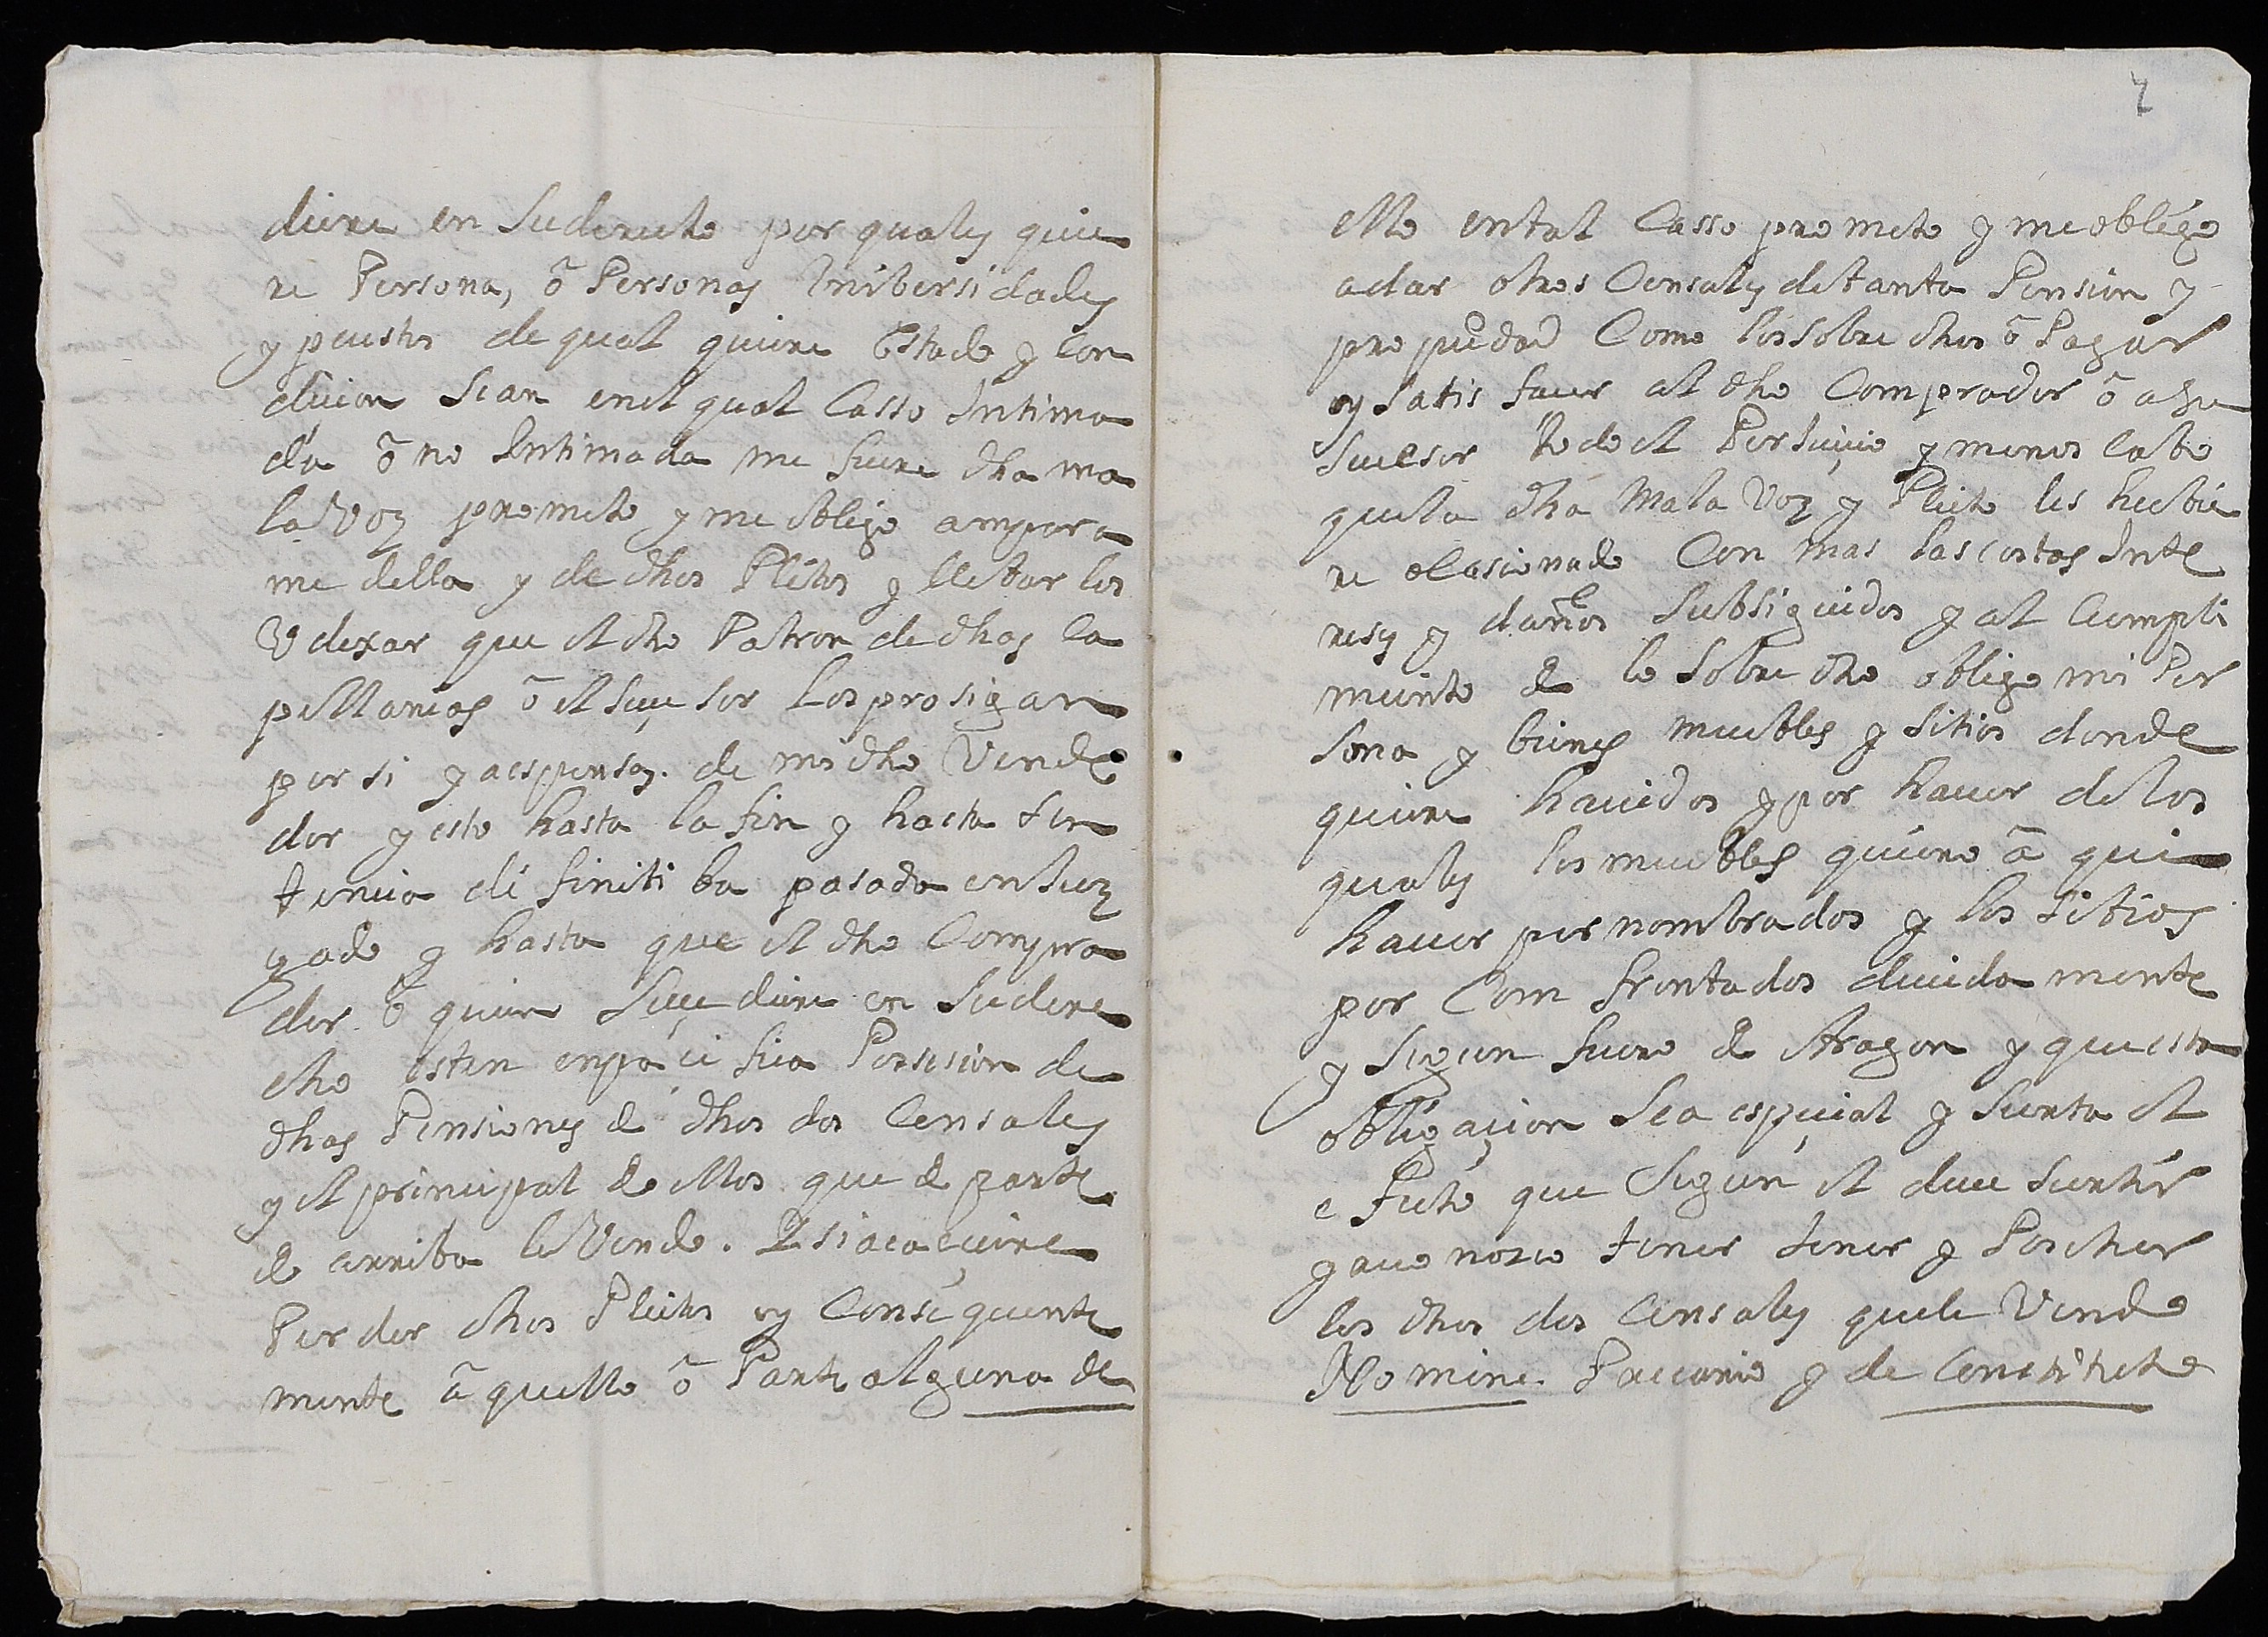 diere en su derecho por quales quie
re Persona, ô Personas Unibersidades
y puestos de qual quiere Estado y con
diçion sean en el qual Casso Intima
da ô no Intimada me fuere dha ma
la Voz prometo y me obligo ampara
me della y de dhos Pleitos y llebarlos
V dexar que el dho Patron de dhas Ca
pellanias ô el suçesor los prosigan
por si y a espensas de mi dho Vende
dor y esto hasta la fin y hasta sen
tencia difinitiba pasada en Juz
gado y hasta que el dho Compra
dor ô quien Suçediere en su dere
cho esten en paçifica Posesion de
dhas Pensiones de dhos dos Censales
y el principal de ellos que de parte
de arriba le Vendo. Y si acaeçiere
Perder dhos Pleitos y Consiguente
mente â quello ô Parte alguna de
2
ello en tal Casso prometo y me obligo
a dar otros Censales de tanta Pension y
propiedad Como los sobre dhos ô Pagar
y Satisfacer al dho Comprador ô a su
sucesor todo el Perjuiçio y menos cabo
que la dha Mala Voz y Pleito les hubie
re ocasionado Con mas las costas Inte
reses y daños subsiguidos y al Cumpli
miento de lo sobre dho obligo mi Per
sona y bienes muebles y sitios donde
quiere hauidos y por hauer de los
quales los muebles quiero â qui
hauer por nombrados y los sitios
por Comfrontados deuidamente
y segun fuero de Aragon y que esta
obligaçion sea espeçial y surta el
efecto que Segun el deue surtir
y aconozco tener tener y Poseher
los dhos dos Censales que le Vendo
Nomine Precario y de Constituto